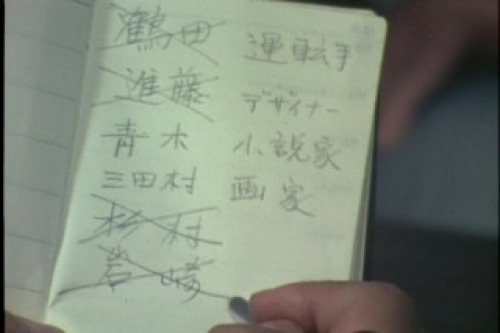 鶴田 運転手
進藤 デザイナー
青木 小説家
三田村 画家
杉村
岩崎